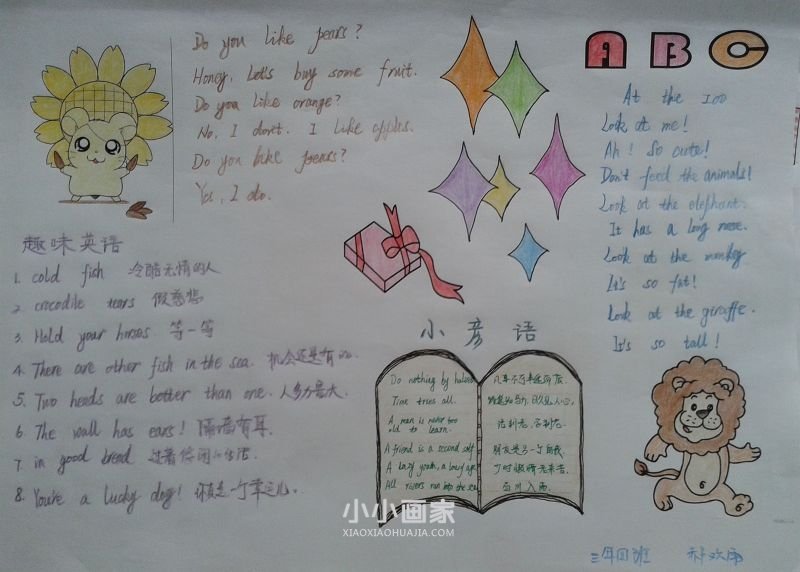 Do you like pears?
Honey, Let's buy some fruit.
Do you like orange?
No, I don't. I like apples.
Do you like pears?
Yes, I do.
A B C
At the zoo
Look at me!
Ah! So cute!
Don't feed the animals!
Look at the elephant.
It has a long nose.
Look at the monkey
It's so fat!
Look at the giraffe.
It's so tall!
趣味英语
1. cold fish 冷酷无情的人
2. crocodile tears 假慈悲
3. Hold your horses 等一等
4. There are other fish in the sea. 机会还是有的.
5. Two heads are better than one. 人多力量大.
6. The wall has ears! 隔墙有耳.
7. in good bread 过着悠闲的生活.
8. You're a lucky dog! 你真是一个幸运儿.
小 彦 语
Do nothing by halves
Time tries all.
A man is never too
old to learn.
A friend is a second self
A lazy youth, a lousy age
All rivers run into the sea
凡事不可半途而废.
路遥知马力,日久见人心.
活到老,学到老.
朋友是另一个自我.
少时懒惰老来苦.
百川入海.
小小画家
XIAOXIAOHUAJIA.COM
三年四班